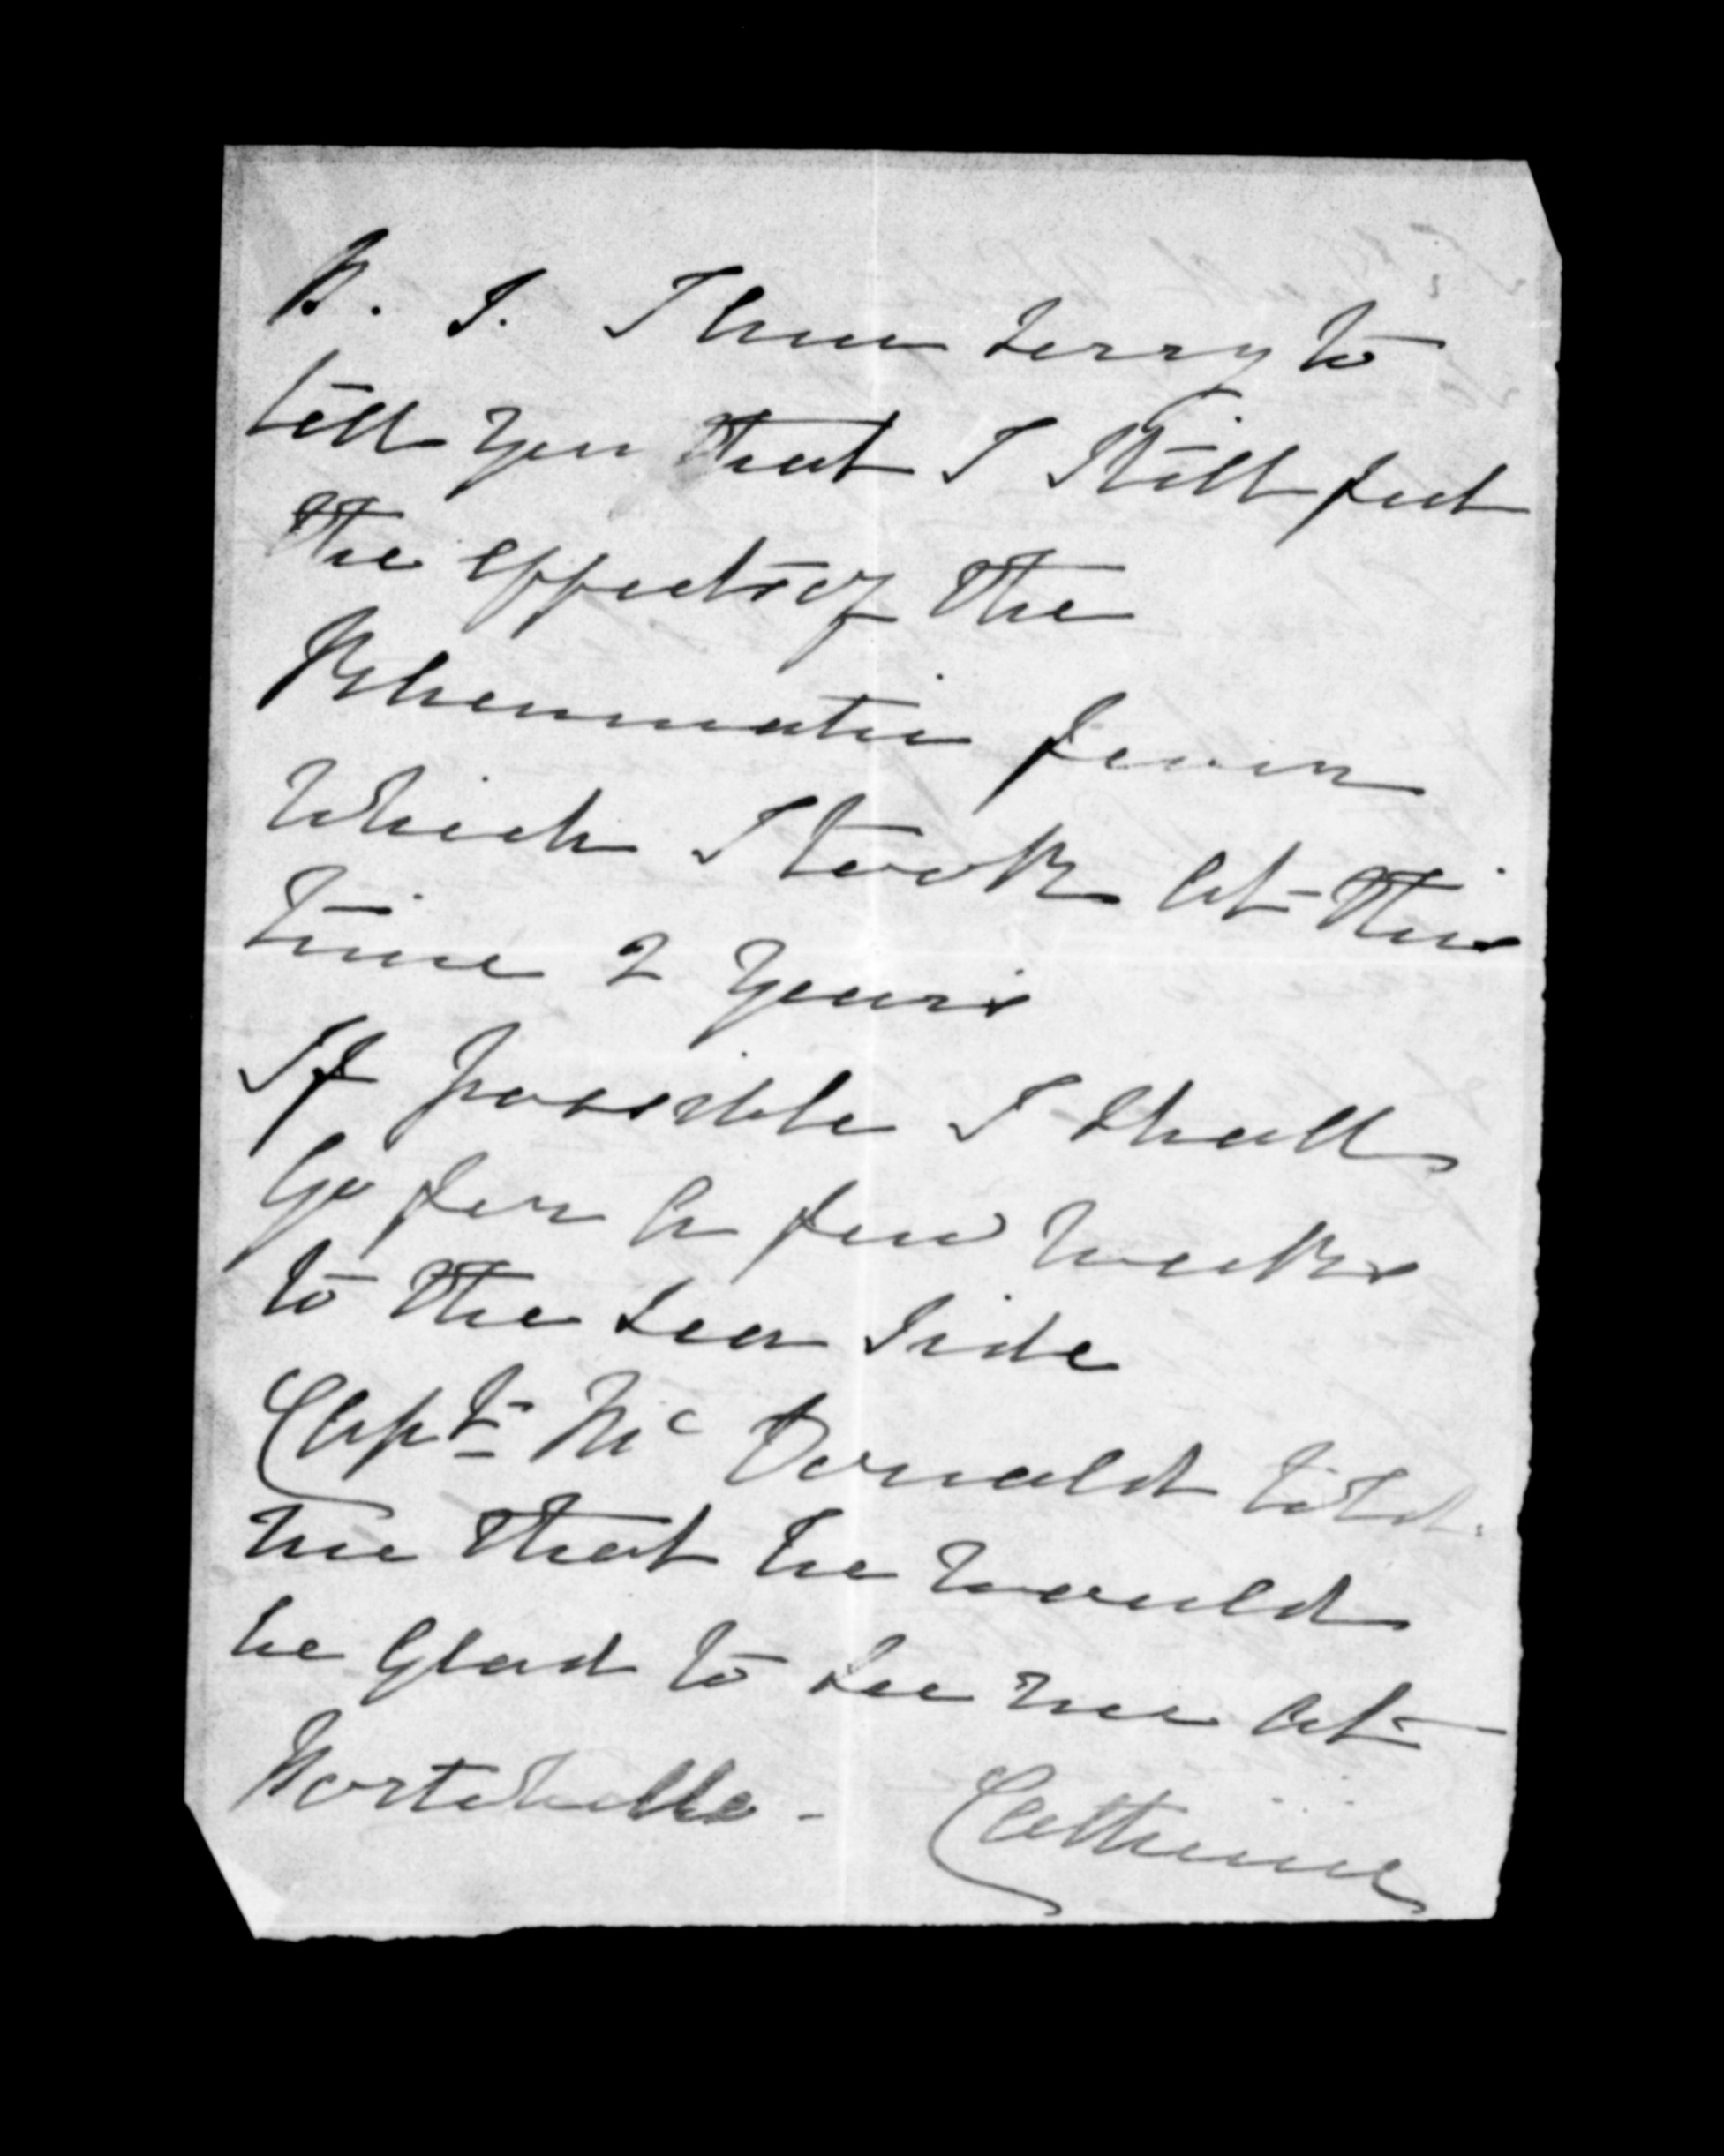 P. S. I am sorry to
tell you that I still feel
the effects of the
Rheumatic fever
which I took at this
time 2 years
If possible I shall
Go for a few weeks
to the sea side
Capt Mc Donald told
me that he would
be glad to see me at
Portobello - Catherine